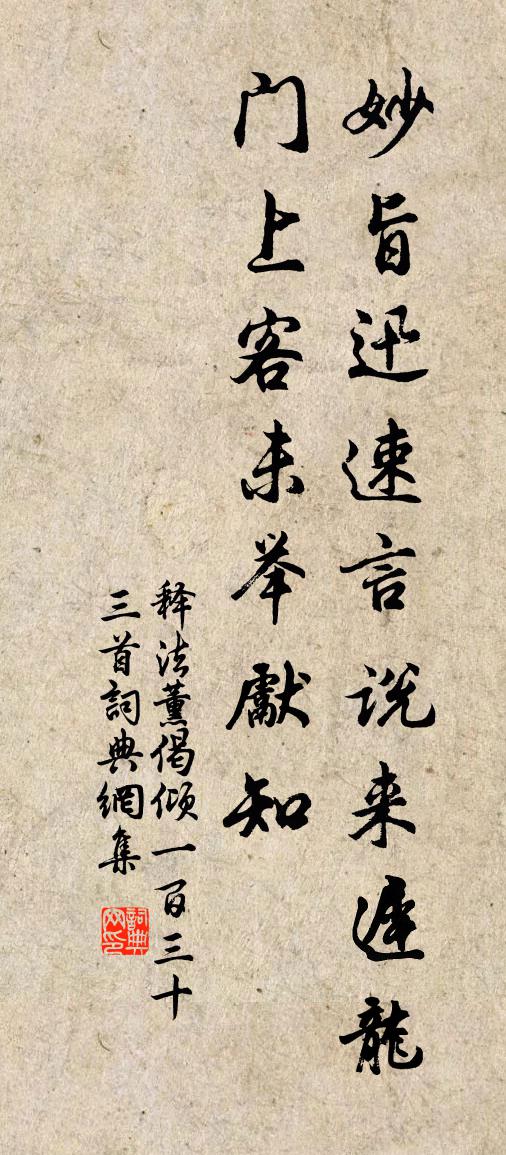 妙旨迅速言说来遲龍
门上客未举獻知
释法薰偈倾一百三十
三首詞典網集
詞典网印